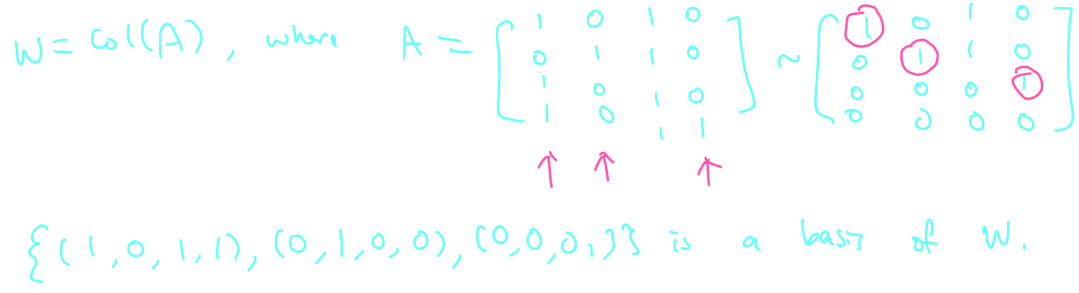 W = Col(A), where A = [1 0 1 0; 0 1 1 0; 1 0 1 0; 1 0 1 1] ~ [1 0 1 0; 0 1 1 0; 0 0 0 1; 0 0 0 0]
{(1,0,1,1), (0,1,0,0), (0,0,0,1)} is a basis of W.